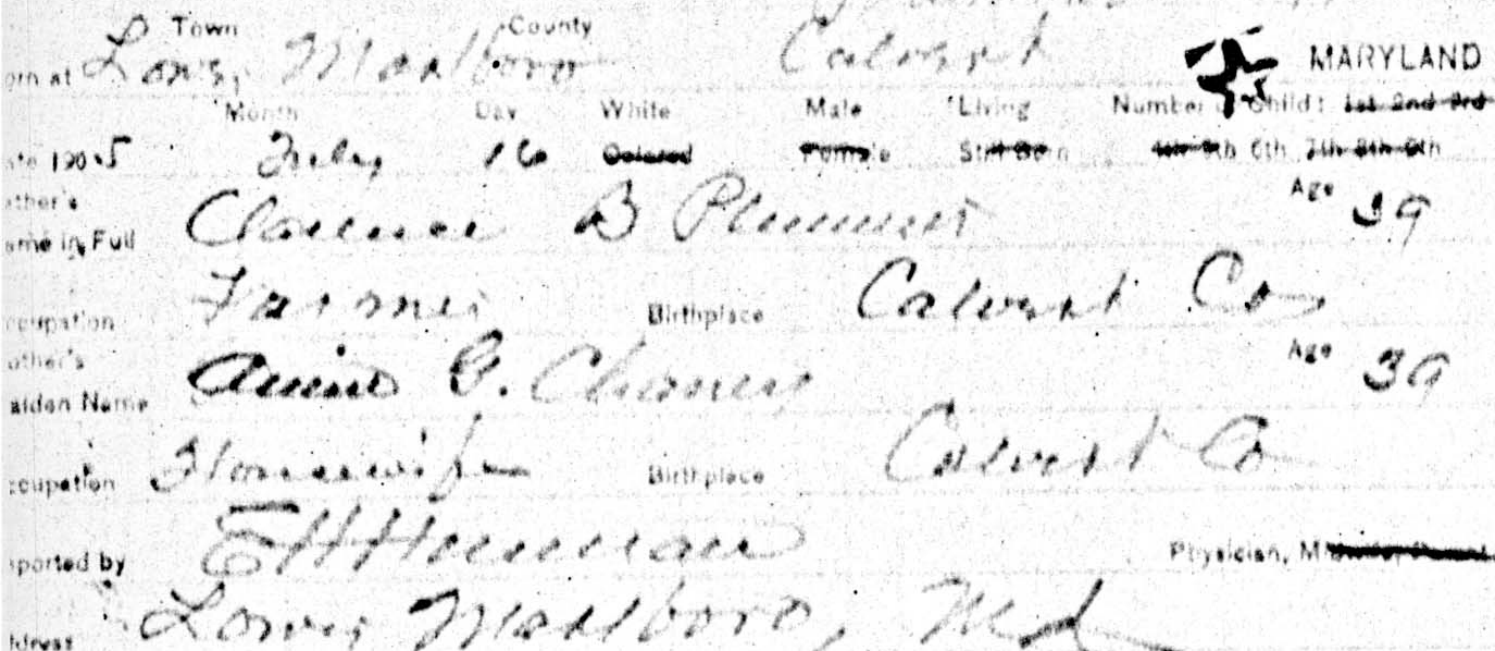 Town County
orn at Lower Marlboro Calvert MARYLAND
Month Day White Male Living Number of Child: 1st 2nd 3rd
ate 1905 July 16 Colored Female Still Born 4th 5th 6th 7th 8th 9th
ather's Age
ame in Full Clarence B Plummer 39
ccupation Farmer Birthplace Calvert Co
other's Age
aiden Name Annie G. Chaney 39
ccupation Housewife Birthplace Calvert Co
eported by E H Physician, Midwife, Parent
ddress Lower Marlboro, Md